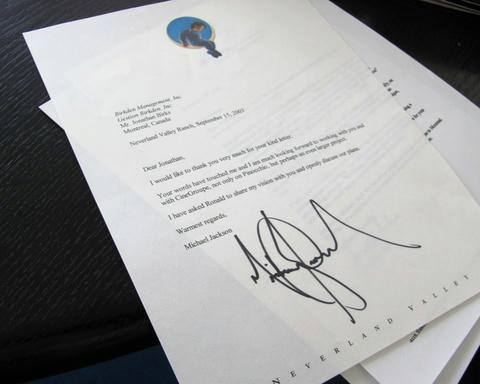 Birkden Management, Inc.
Gestion Birkden, Inc.
Mr. Jonathan Birks
Montreal, Canada
Neverland Valley Ranch, September 15, 2003
Dear Jonathan,
I would like to thank you very much for your kind letter.
Your words have touched me and I am much looking forward to working with you and
with CineGroupe, not only on Pinocchio, but perhaps an even larger project.
I have asked Ronald to share my vision with you and openly discuss our plans.
Warmest regards,
Michael Jackson
NEVERLAND VALLEY